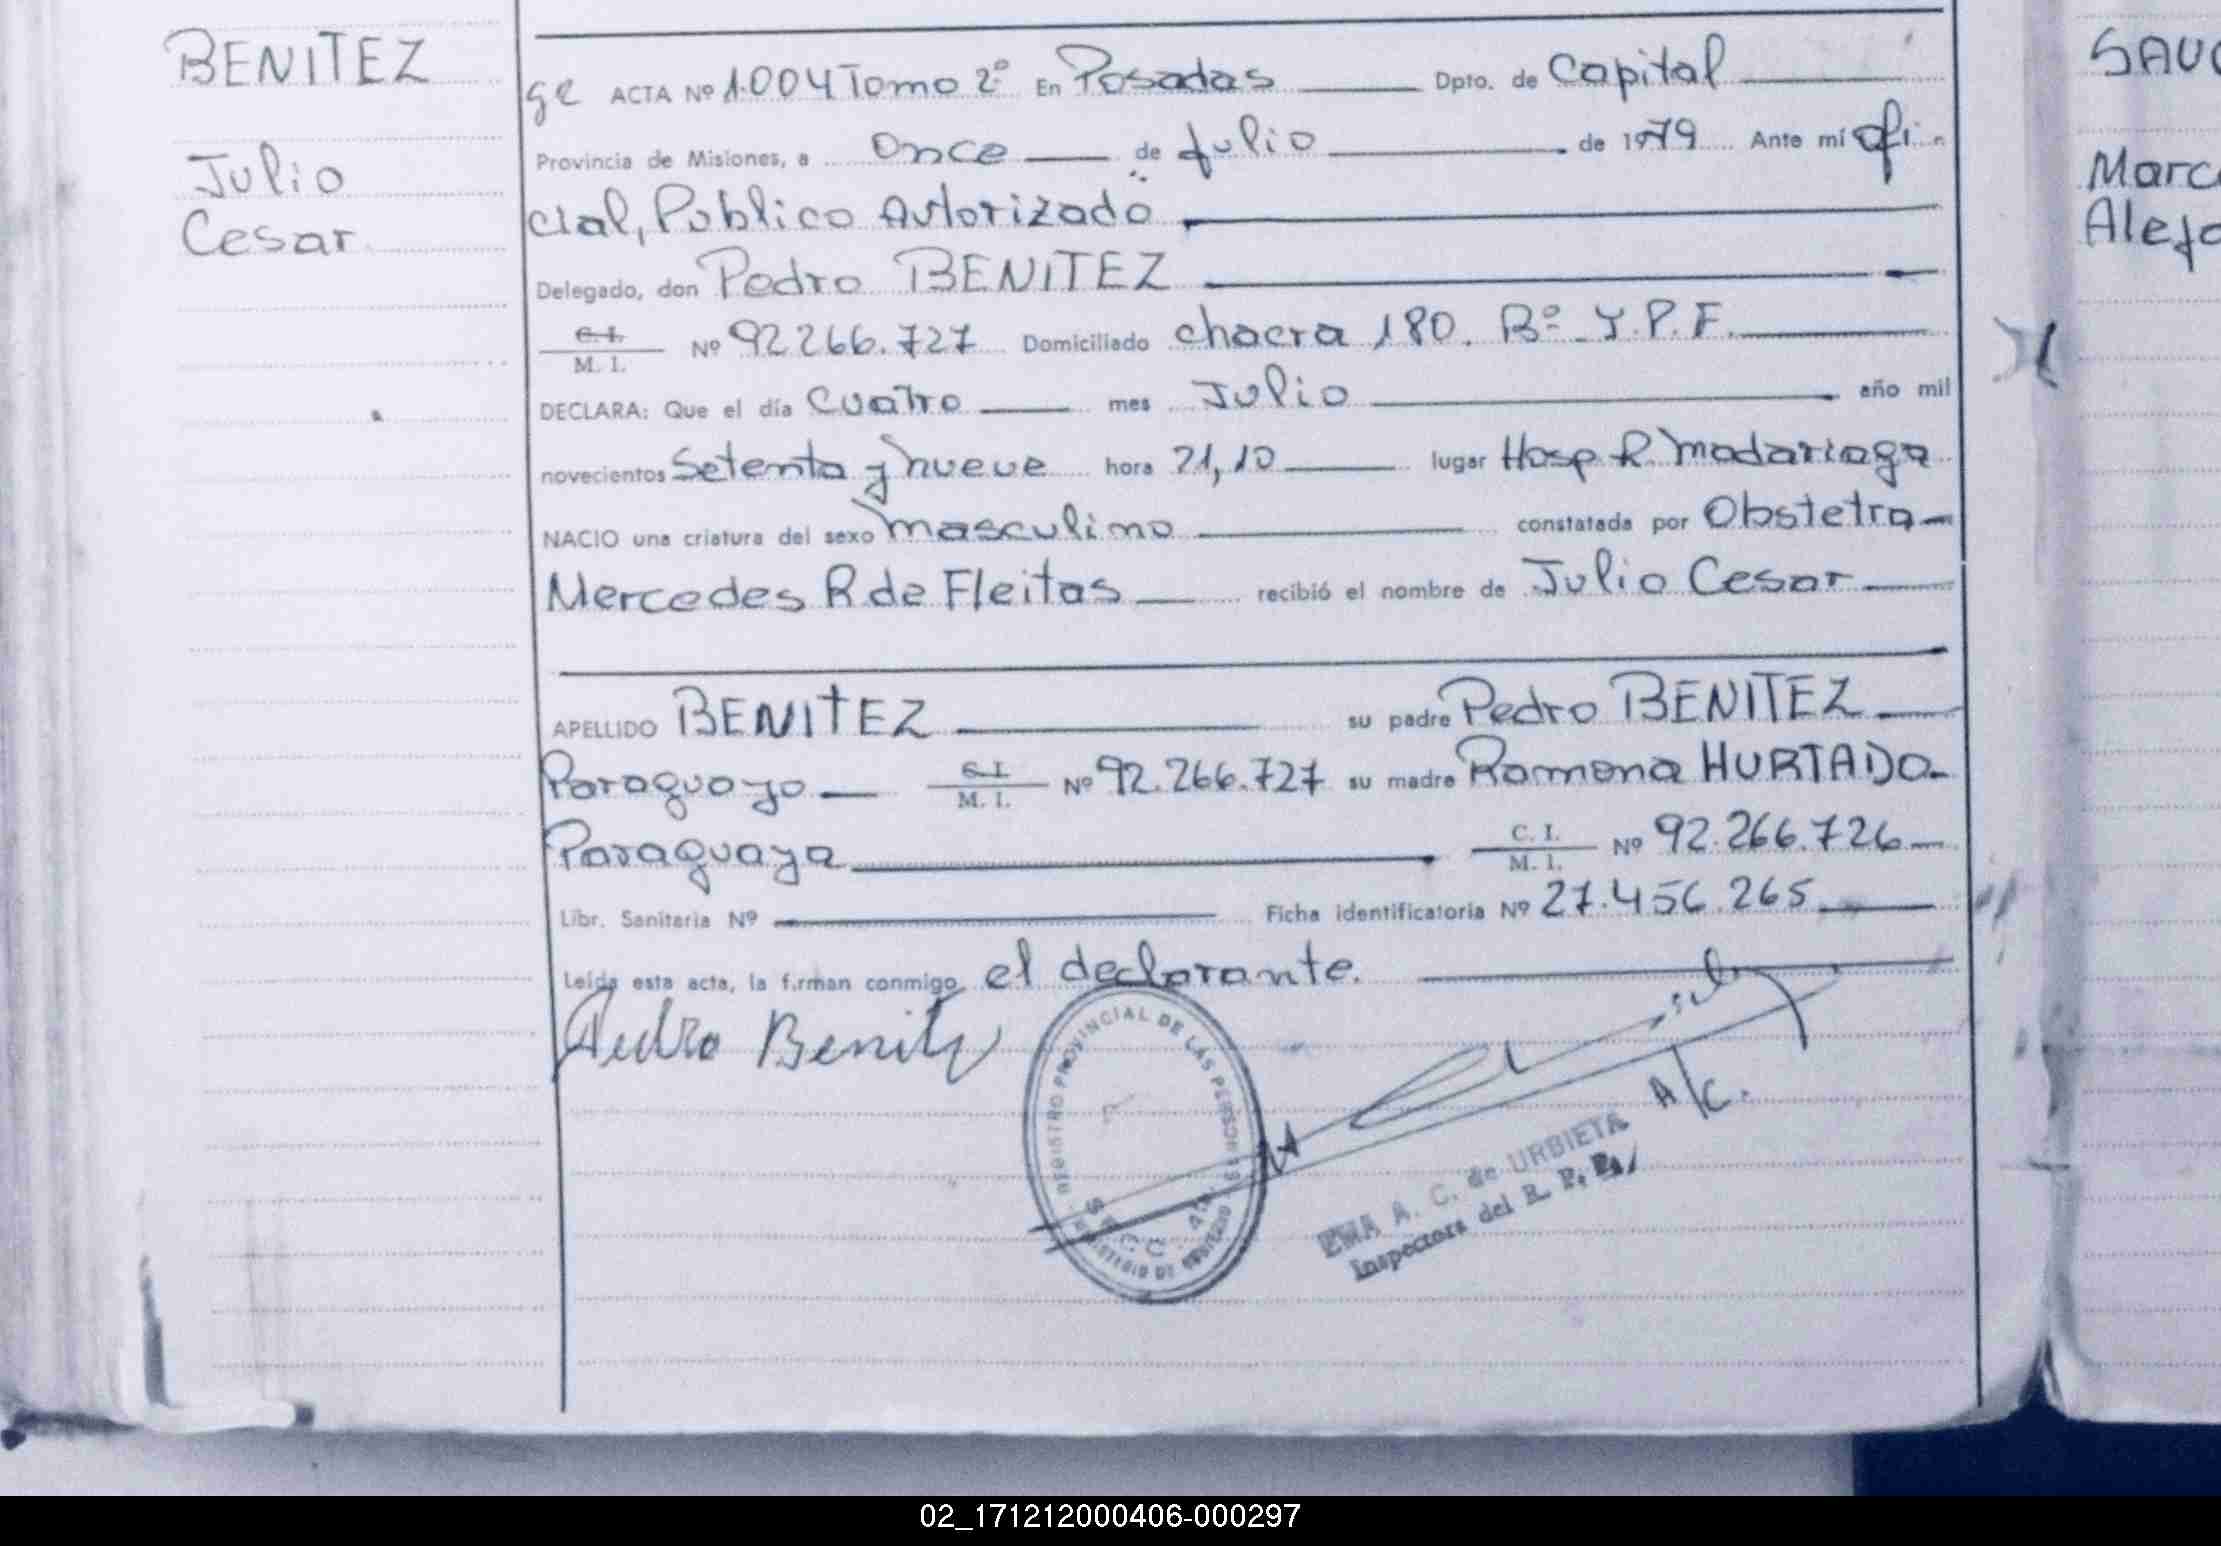 BENITEZ
Julio
Cesar
ge ACTA Nº 1.004 Tomo 2º En Posadas Dpto. de Capital
Provincia de Misiones, a once de julio de 1979 Ante mí ofi-
cial, Publico Autorizado
Delegado, don Pedro BENITEZ
C. I.
M. I. Nº 92266.727 Domiciliado chacra 180. Bº Y.P.F.
DECLARA: Que el día cuatro mes Julio año mil
novecientos Setenta y nueve hora 21,10 lugar Hosp R. Madariaga
NACIO una criatura del sexo masculino constatada por Obstetra
Mercedes R de Fleitas recibió el nombre de Julio Cesar
APELLIDO BENITEZ su padre Pedro BENITEZ
Paraguayo C. I. M. I. Nº 92.266.727 su madre Ramona HURTADO
Paraguaya C. I. M. I. Nº 92.266.726
Libr. Sanitaria Nº Ficha identificatoria Nº 27.456.265
Leída esta acta, la firman conmigo, el declarante.
Pedro Benitz
REGISTRO PROVINCIAL DE LAS PERSONAS
SECC. 4a
MINISTERIO DE GOBIERNO
A/C.
EMA A. C. de URBIETA
Inspectora del R. P. P.
SAU
Marc
Alej
02_171212000406-000297